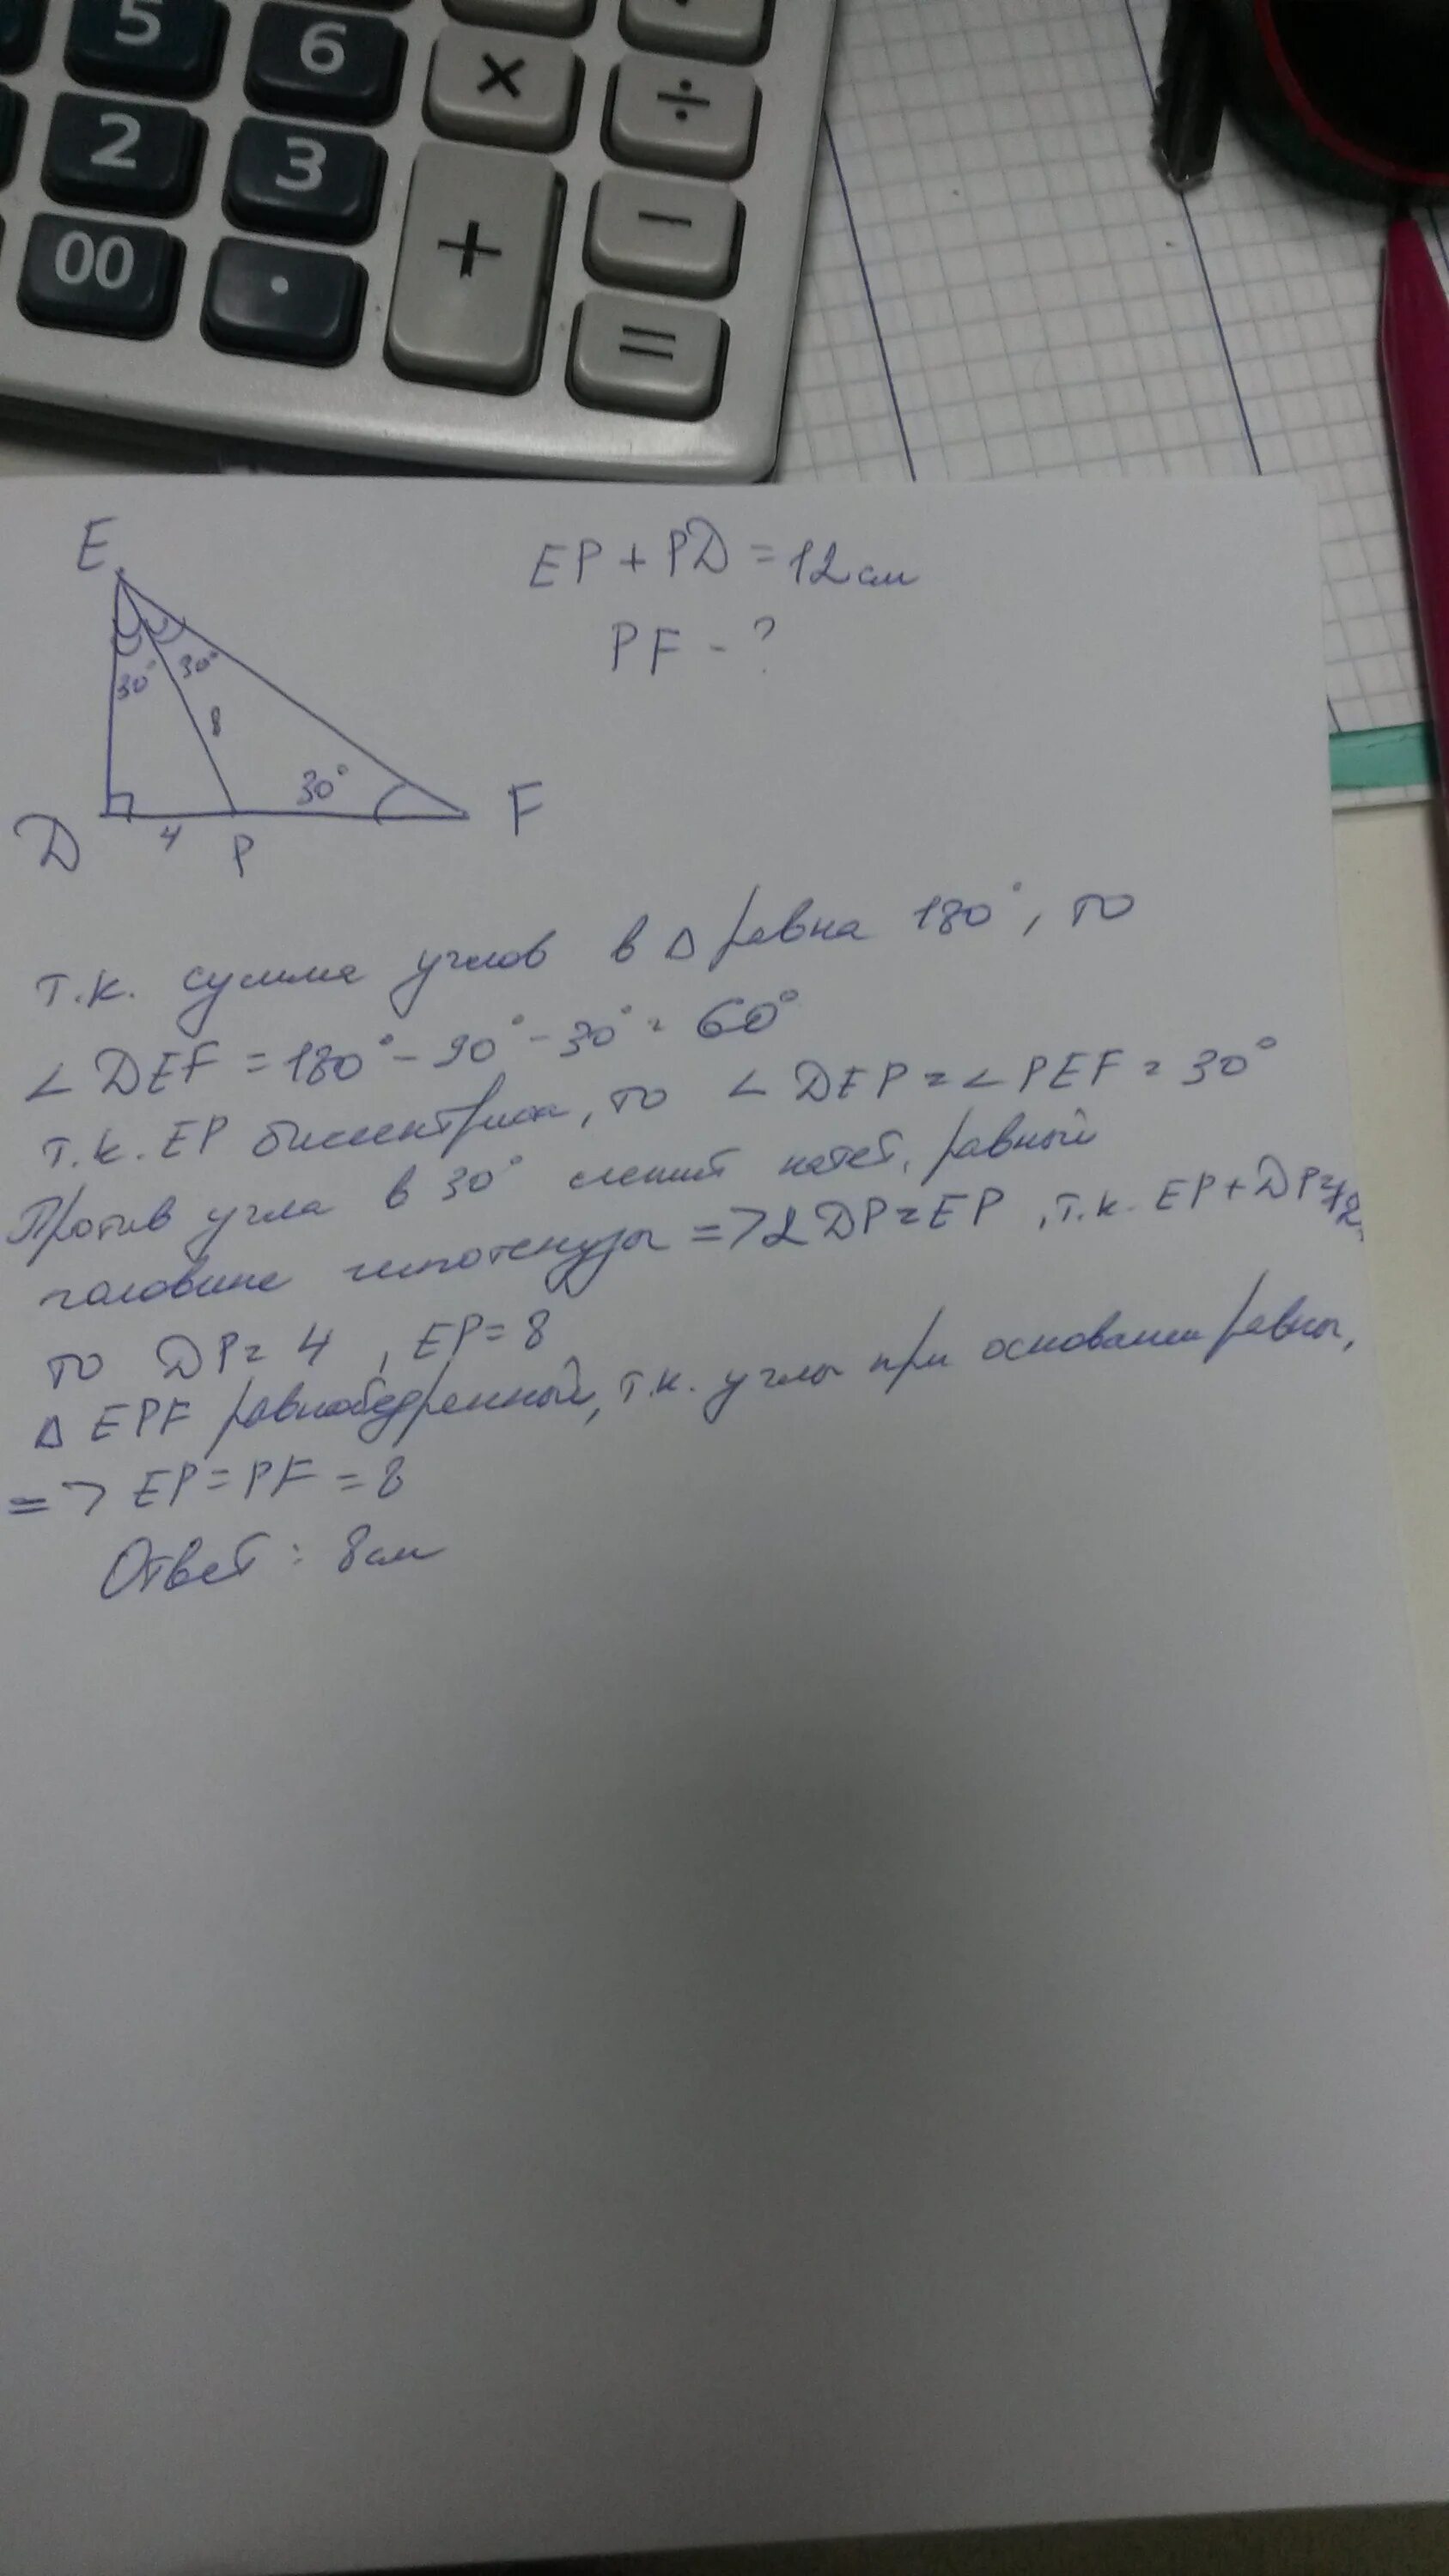 5 6 × ÷
2 3 −
00 . + =
E
EP + PD = 12 см
PF - ?
30° 30°
8
30°
D 4 P F
т.к. сумма углов в Δ равна 180°, то
∠ DEF = 180° - 90° - 30° = 60°
т.к. EP биссектриса, то ∠ DEP = ∠ PEF = 30°
Против угла в 30° лежит катет, равный
половине гипотенузы => 2DP = EP, т.к. EP + DP = 12,
то DP = 4, EP = 8
Δ EPF равнобедренный, т.к. углы при основании равны,
=> EP = PF = 8
Ответ: 8 см